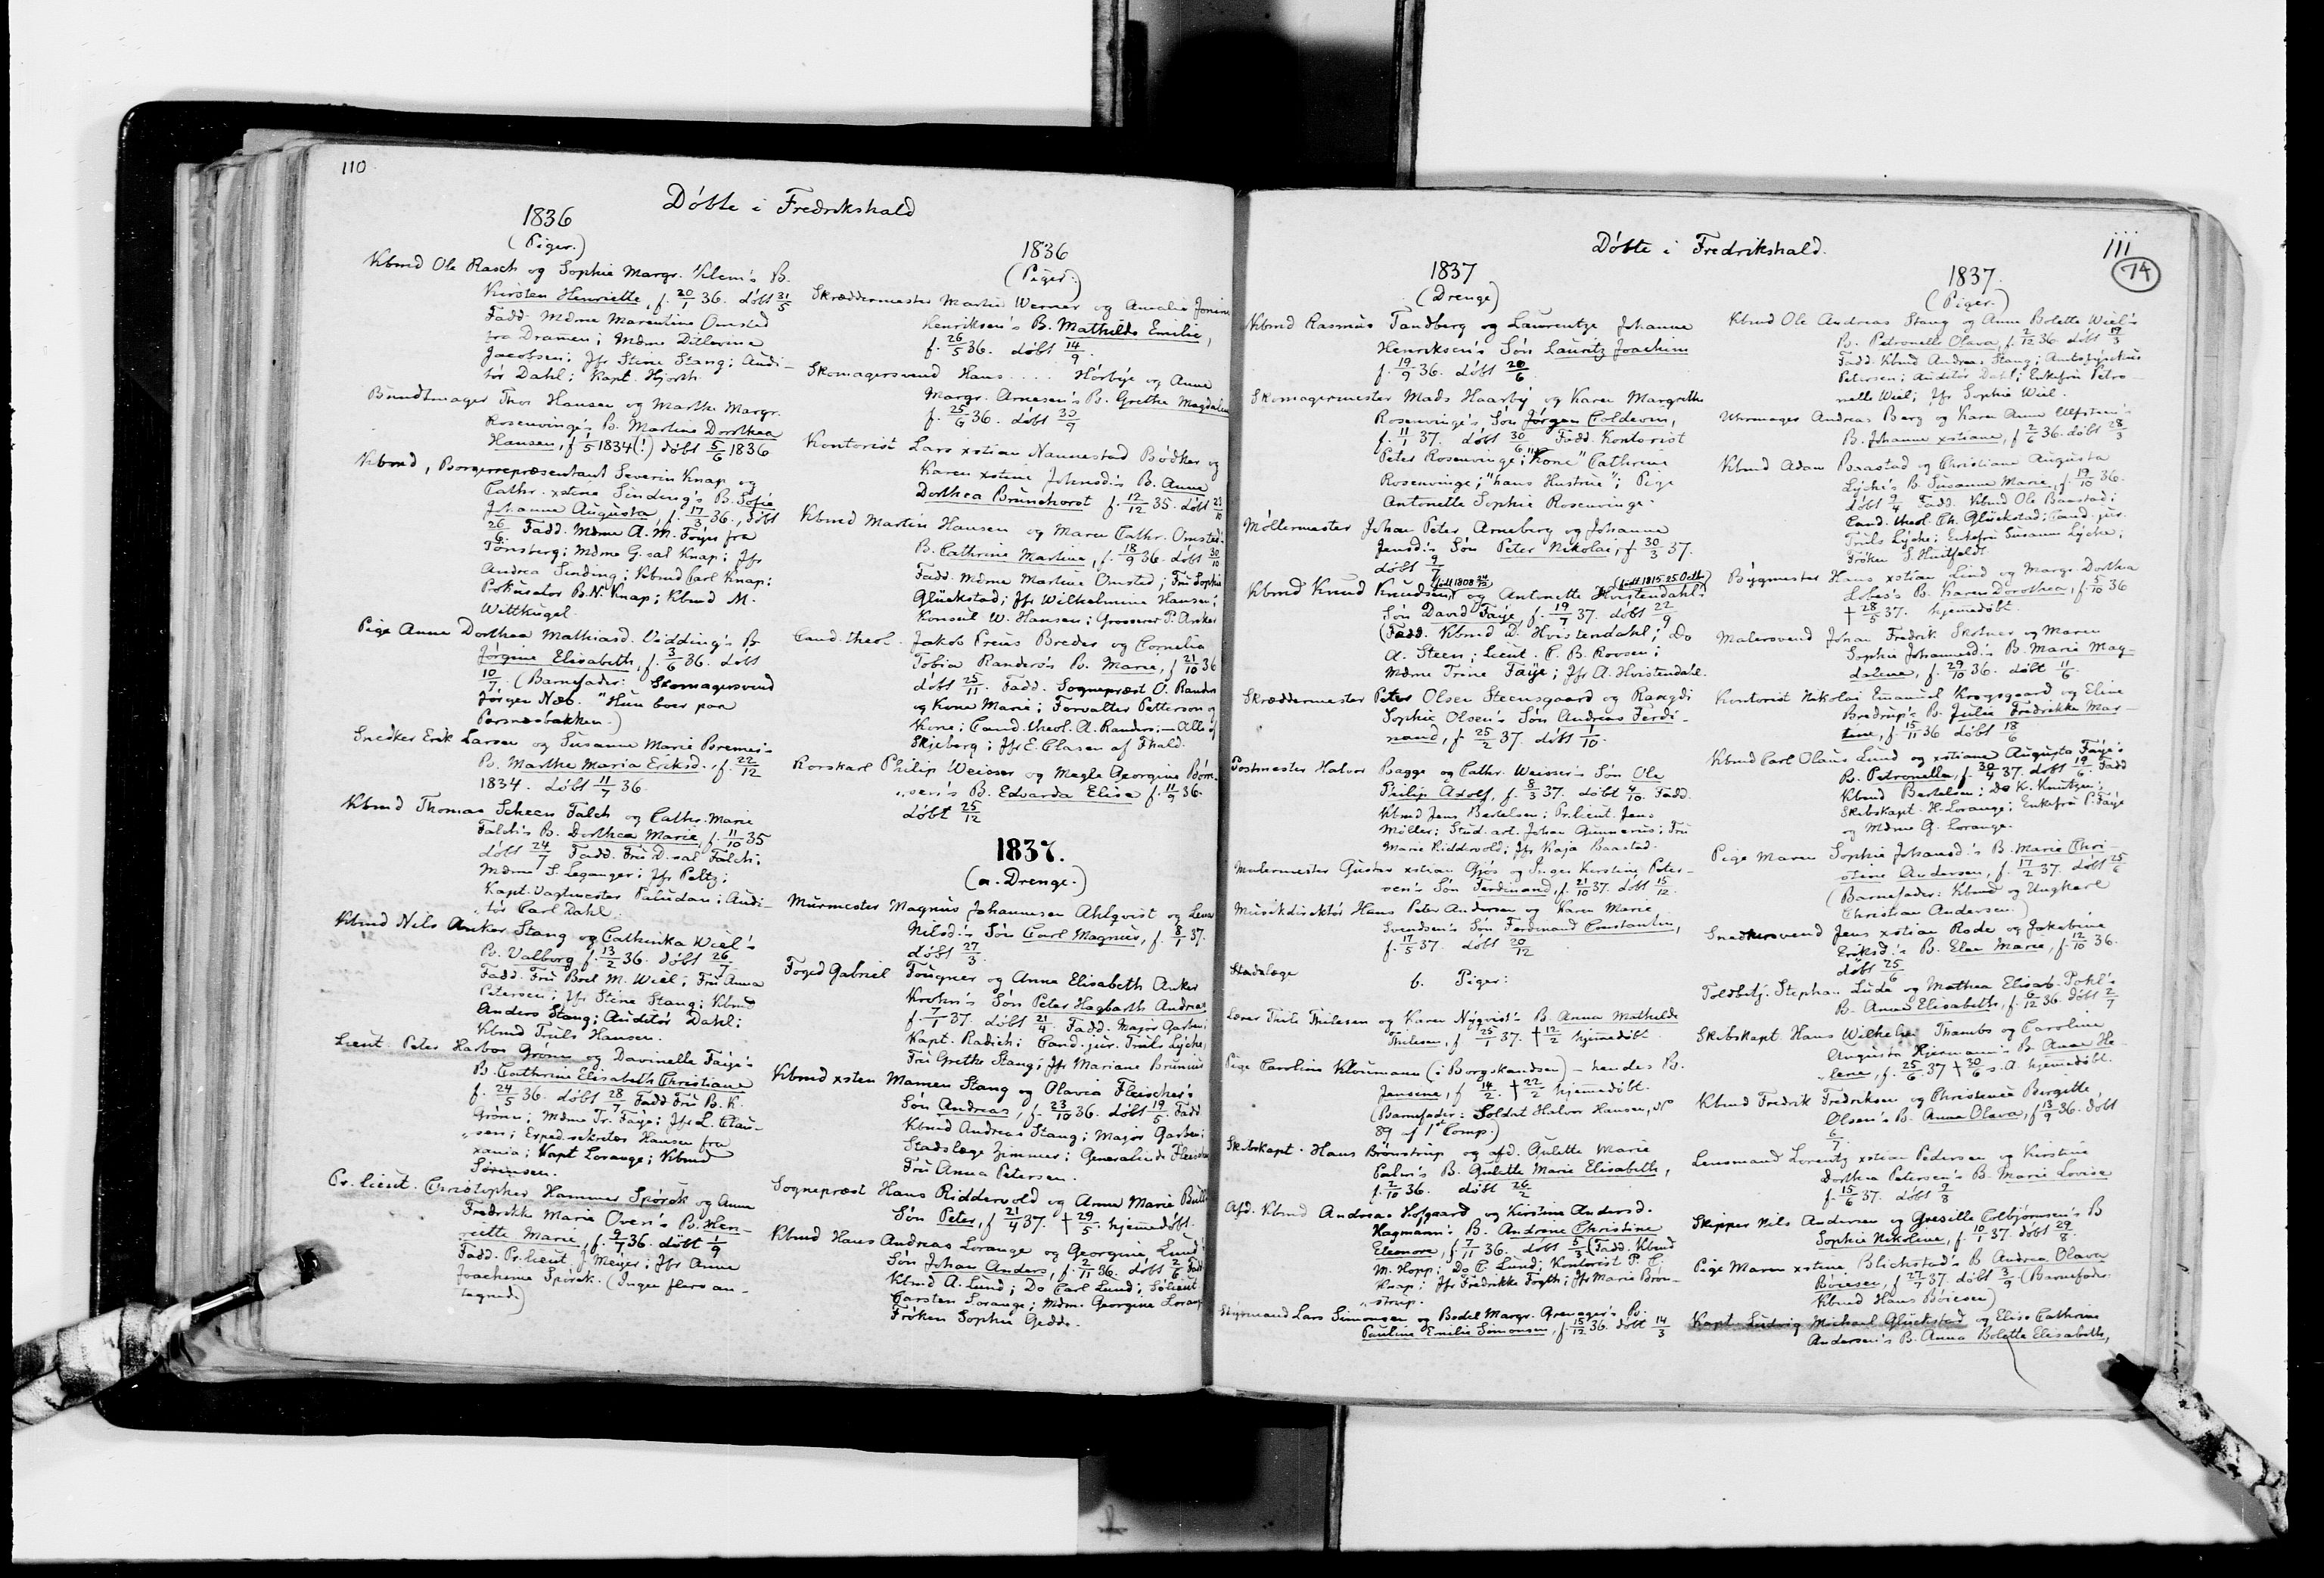 110
Döbte i Fredrikshald
1836
(Piger.)
Kbmd Ole Rasch og Sophie Margr. Klem's B.
Kirsten Henriette, f. 20/1 36. döbt 31/5
Fadd. Mdme Marentine Omsted
fra Dramen; Mdme Ditlevine
Jacobsen; Jfr Stine Stang; Audi-
tör Dahl; Kapt. Hjorth.
Bundtmager Thor Hansen og Marthe Margr.
Rosenvinge's B. Martine Dorthea
Hansen, f 1/5 1834(!) döbt 5/6 1836
Kbmd, Borgerrepræsentant Severin Knap og
Cathr. xstine Sinding's B. Sofie
Johanne Augusta, f. 17/3 36., döbt
26/6. Fadd. Mdme A. M. Foyn fra
Tönsberg; Mdme G. sal Knap; Jfr
Andrea Sinding; Kbmd Carl Knap;
Prokurator B. N. Knap; Kbmd M.
Wittkugel.
Pige Anne Dorthea Mathiasd. Vidding's B
Jörgine Elisabeth, f. 3/6 36. döbt
10/7. (Barnefader: Skomagersvend
Jörgen Næs. "Hun boer paa
Pærnæsbakken.)
Snedker Erik Larsen og Susanne Marie Bremer's
B. Marthe Maria Eriksd., f. 22/12
1834. döbt 11/7 36.
Kbmd Thomas Scheen Falch og Cathr. Marie
Falch's B. Dorthea Marie, f. 11/10 35
döbt 24/7 Fadd. Fru D. sal Falch;
Mdme S. Leganger; Jfr Peltz;
Kapt. Vagtmester Paludan; Audi-
tör Carl Dahl.
Kbmd Nils Anker Stang og Cathinka Wiel's
B. Valborg f. 13/2 36. döbt 26/7
Fadd. Fru Boel M. Wiel; Fru Anna
Petersen; Jfr Stine Stang; Kbmd
Anders Stang; Auditör Dahl;
Kbmd Truls Hansen.
Lieut. Peter Harboe Grönn og Davinelle Faÿe's
B. Cathrine Elisabeth Christiane
f. 24/5 36. döbt 28/7 Fadd Fru B. K.
Grönn; Mdme Tr. Faÿe; Jfr L. Clau-
sen; Exped. sekretær Hansen fra
xania; Kapt Lorange; Kbmd
Sörensen.
Pr. lieut. Christopher Hammer Spörck og Anne
Fredrikke Marie Oven's B. Hen-
riette Marie, f. 9/7 36. döbt 1/9
Fadd. Pr. lieut. J. Meyer; Jfr Anne
Joachime Spörck. (Ingen flere an-
tegnede)
1836
(Piger.)
Skræddermester Martin Werner og Amalie Jonine
Henriksen's B. Mathilde Emilie,
f. 26/5 36. döbt 14/9.
Skomagersvend Hans .... Hörbÿe og Anne
Margr. Arnesen's B. Grethe Magdalene
f. 25/6 36. döbt 30/9
Kontorist Lars xstian Nannestad Bödker og
Karen xstine Johnsd.'s B. Anne
Dorthea Brunchorst f. 12/12 35. döbt 23/10
Kbmd Martin Hansen og Maren Cathr. Omsted's
B. Cathrine Martine, f. 18/9 36. döbt 30/10
Fadd. Mdme Martine Omsted; Fru Sophie
Glückstad; Jfr Wilhelmine Hansen;
Konsul W. Hansen; Grosserer P. Anker
Cand. theol. Jakob Preus Breder og Cornelia
Tobia Randers's B. Marie, f 21/10 36
döbt 25/11. Fadd. Sognepræst O. Randers
og Kone Marie; Forvalter Petterson og
Kone; Cand. theol. A. Randers; — Alle af
Skjeberg; Jfr E. Clasen af Fhald.
Rorskarl Philip Weisser og Megle Georgine Börre-
sen's B. Edvarda Elise f. 11/9 36.
döbt 25/12
1837.
(a. Drenge.)
Murmester Magnus Johannesen Ahlqvist og Lena
Nilsd.'s Sön Carl Magnus, f. 8/1 37.
döbt 27/3.
Foged Gabriel Fougner og Anne Elisabeth Anker
Krohn's Sön Peter Hagbarth Andreas
f. 7/1 37. döbt 21/4 Fadd. Major Garben;
Kapt. Radich; Cand. jur. Truls Lyche;
Fru Grethe Stang; Jfr Mariane Brunius
Kbmd xsten Mamen Stang og Olavia Fleischer's
Sön Andreas, f. 23/10 36. döbt 19/5. Fadd
Kbmd Andreas Stang; Major Garben;
Stadslæge Zimmer; Generalinde Fleischer
Fru Anna Petersen.
Sognepræst Hans Riddervold og Anne Marie Bull's
Sön Peter, f 21/4 37. † 29/5. hjemedöbt.
Kbmd Hans Andreas Lorange og Georgine Lund's
Sön Johan Anders, f. 2/11 36. döbt 2/6 Fadd
Kbmd A. Lund; Do Carl Lund; Sölieut
Carsten Lorange; Mdm. Georgine Lorange
Fröken Sophie Gedde.
Döbte i Fredrikshald.
111
74
1837
(Drenge)
Kbmd Rasmus Tandberg og Laurentze Johanne
Henriksen's Sön Lauritz Joachim
f. 19/9 36. döbt 28/6
Skomagermester Mads Haarbÿ og Karen Margrethe
Rosenvinge's Sön Jörgen Coldevin,
f. 11/1 37. döbt 30/6 Fadd. Kontorist
Peter Rosenvinge; "Kone" Cathrine
Rosenvinge; "hans Hustrue"; Pige
Antonette Sophie Rosenvinge.
Möllermester Johan Peter Arneberg og Johanne
Jensd.'s Sön Peter Nikolai, f 30/3 37.
döbt 9/7
(födt 1808 24/12) (födt 1815 25 Octb)
Kbmd Knud Knudsen og Antonette Hvistendahl's
Sön David Faÿe, f. 19/7 37. döbt 22/9
(Fadd. Kbmd D. Hvistendahl; Do
A. Steen; Lieut. C. B. Roosen;
Mdme Trine Faÿe; Jfr A. Hvistendahl.
Skræddermester Peter Olsen Steensgaard og Rangdi
Sophie Olsen's Sön Andreas Ferdi-
nand, f. 25/2 37. döbt 1/10.
Postmester Halvor Bagge og Cathr. Weisser's Sön Ole
Philip Adolf, f. 8/3 37. döbt 4/10 Fadd.
Kbmd Jens Bertelsen; Pr. lieut. Jens
Möller; Stud. art. Johan Gunnerius; Fru
Marie Riddervold; Jfr Kaja Baastad.
Malermester Gustav xstian Gjös og Inger Kirstine Peter-
sen's Sön Ferdinand, f. 21/10 37. döbt 15/12.
Musikdirektör Hans Peter Andersen og Karen Marie
Svendsen's Sön Ferdinand Constantin,
f. 17/5 37. döbt 20/12
Stadslæge
b. Piger:
Lærer Thile Thilesen og Karen Nyqvist's B. Anna Mathilde
Thilesen, f 25/1 37. † 12/2 hjemedöbt.
Pige Caroline Kloumann (i Borgskandsen) — hendes B.
Jensine, f 14/2. † 22/2 hjemedöbt.
(Barnefader: Soldat Halvor Hansen, No
89 af 1st Comp.)
Skibskapt. Hans Brönstrup og afd. Gulette Marie
Palm's B. Gulette Marie Elisabeth,
f. 2/10 36. döbt 26/2
Afd. Kbmd Andreas Hofgaard og Kirstine Andersd.
Hagmann's B. Andrine Christine
Eleonore, f 7/11 36. döbt 5/3 (Fadd. Kbmd
M. Hopp; Do C. Lund; Kontorist P. C.
Knap; Jfr Fredrikke Frÿth; Jfr Marie Brön-
strup.
Styrmand Lars Simonsen og Bodel Margr. Grenager's B.
Pauline Emilie Simonsen, f. 15/12 36. döbt 14/3
1837.
(Piger.)
Kbmd Ole Andreas Stang og Anne Bolette Wiel's
B. Petronelle Olava, f. 2/12 36 döbt 19/3
Fadd. Kbmd Andreas Stang; Amtsfysikus
Petersen; Auditör Dahl; Enkefru Petro-
nelle Wiel; Jfr Sophie Wiel.
Uhrmager Andreas Berg og Karen Anne Ulfsten's
B. Johanne xstiane, f 2/6 36. döbt 28/3
Kbmd Adam Baastad og Christiane Augusta
Lyche's B. Susanne Marie, f. 19/10 36.
döbt 9/4 Fadd. Kbmd Ole Baastad;
Cand. theol. Ch. Glückstad; Cand. jur.
Truls Lÿche; Enkefru Susanne Lÿche;
Fröken S. Huitfeldt
Bygmester Hans xstian Lind og Margr. Dorthea
B. Karen Dorothea, f. 5/10 36
† 28/5 37. hjemedöbt.
Malersvend Johan Fredrik Skotner og Maren
Sophie Johannesd.'s B. Marie Mag-
dalene, f. 29/10 36. döbt 11/6.
Kontorist Nikolai Emanuel Krogsgaard og Eline
Bredrup's B. Julie Fredrikke Mar-
tine, f. 15/11 36 döbt 18/6
Kbmd Carl Olaus Lund og xstiane Augusta Faÿe's
B. Petronella, f. 30/4 37. döbt 19/6. Fadd
Kbmd Bertelsen; Do K. Knutzen;
Skibskapt. H. Lorange; Enkefru P. Faÿe
og Mdme G. Lorange.
Pige Maren Sophie Johansd.'s B. Marie Chri-
stine Andersen, f. 17/2 37. döbt 25/6
(Barnefader: Kbmd og Ungkarl
Christian Andersen.)
Snedkersvend Jens xstian Rode og Jakobine
Eriksd.'s B. Elen Marie, f. 12/10 36.
döbt 25/6
Toldbetj. Stephan Lude og Mathea Elisab. Pohl's
B. Anna Elisabeth, f. 6/12 36. döbt 2/7
Skibskapt. Hans Wilhelm Thambs og Caroline
Augusta Hjermann's B. Anne He-
lene, f. 25/6 37 † 30/6 s.A. hjemedöbt.
Kbmd Fredrik Fredriksen og Christence Bergitte
Olsen's B. Anne Olava, f 13/9 36. döbt
6/7.
Lensmand Lorentz xstian Pedersen og Kirstine
Dorthea Petersen's B. Marie Lovise
f. 15/6 37. döbt 9/8
Skipper Nils Andersen og Gresille Colbjörnsen's B
Sophie Nikoline, f. 10/1 37. döbt 29/8.
Pige Maren xstine Blichstad's B. Andrea Olava
Böiesen, f 27/7 37. döbt 3/9 (Barnefader
Kbmd Hans Böiesen)
Kapt. Ludvig Michael Glückstad og Elise Cathrine
Andersen's B. Anna Bolette Elisabeth,